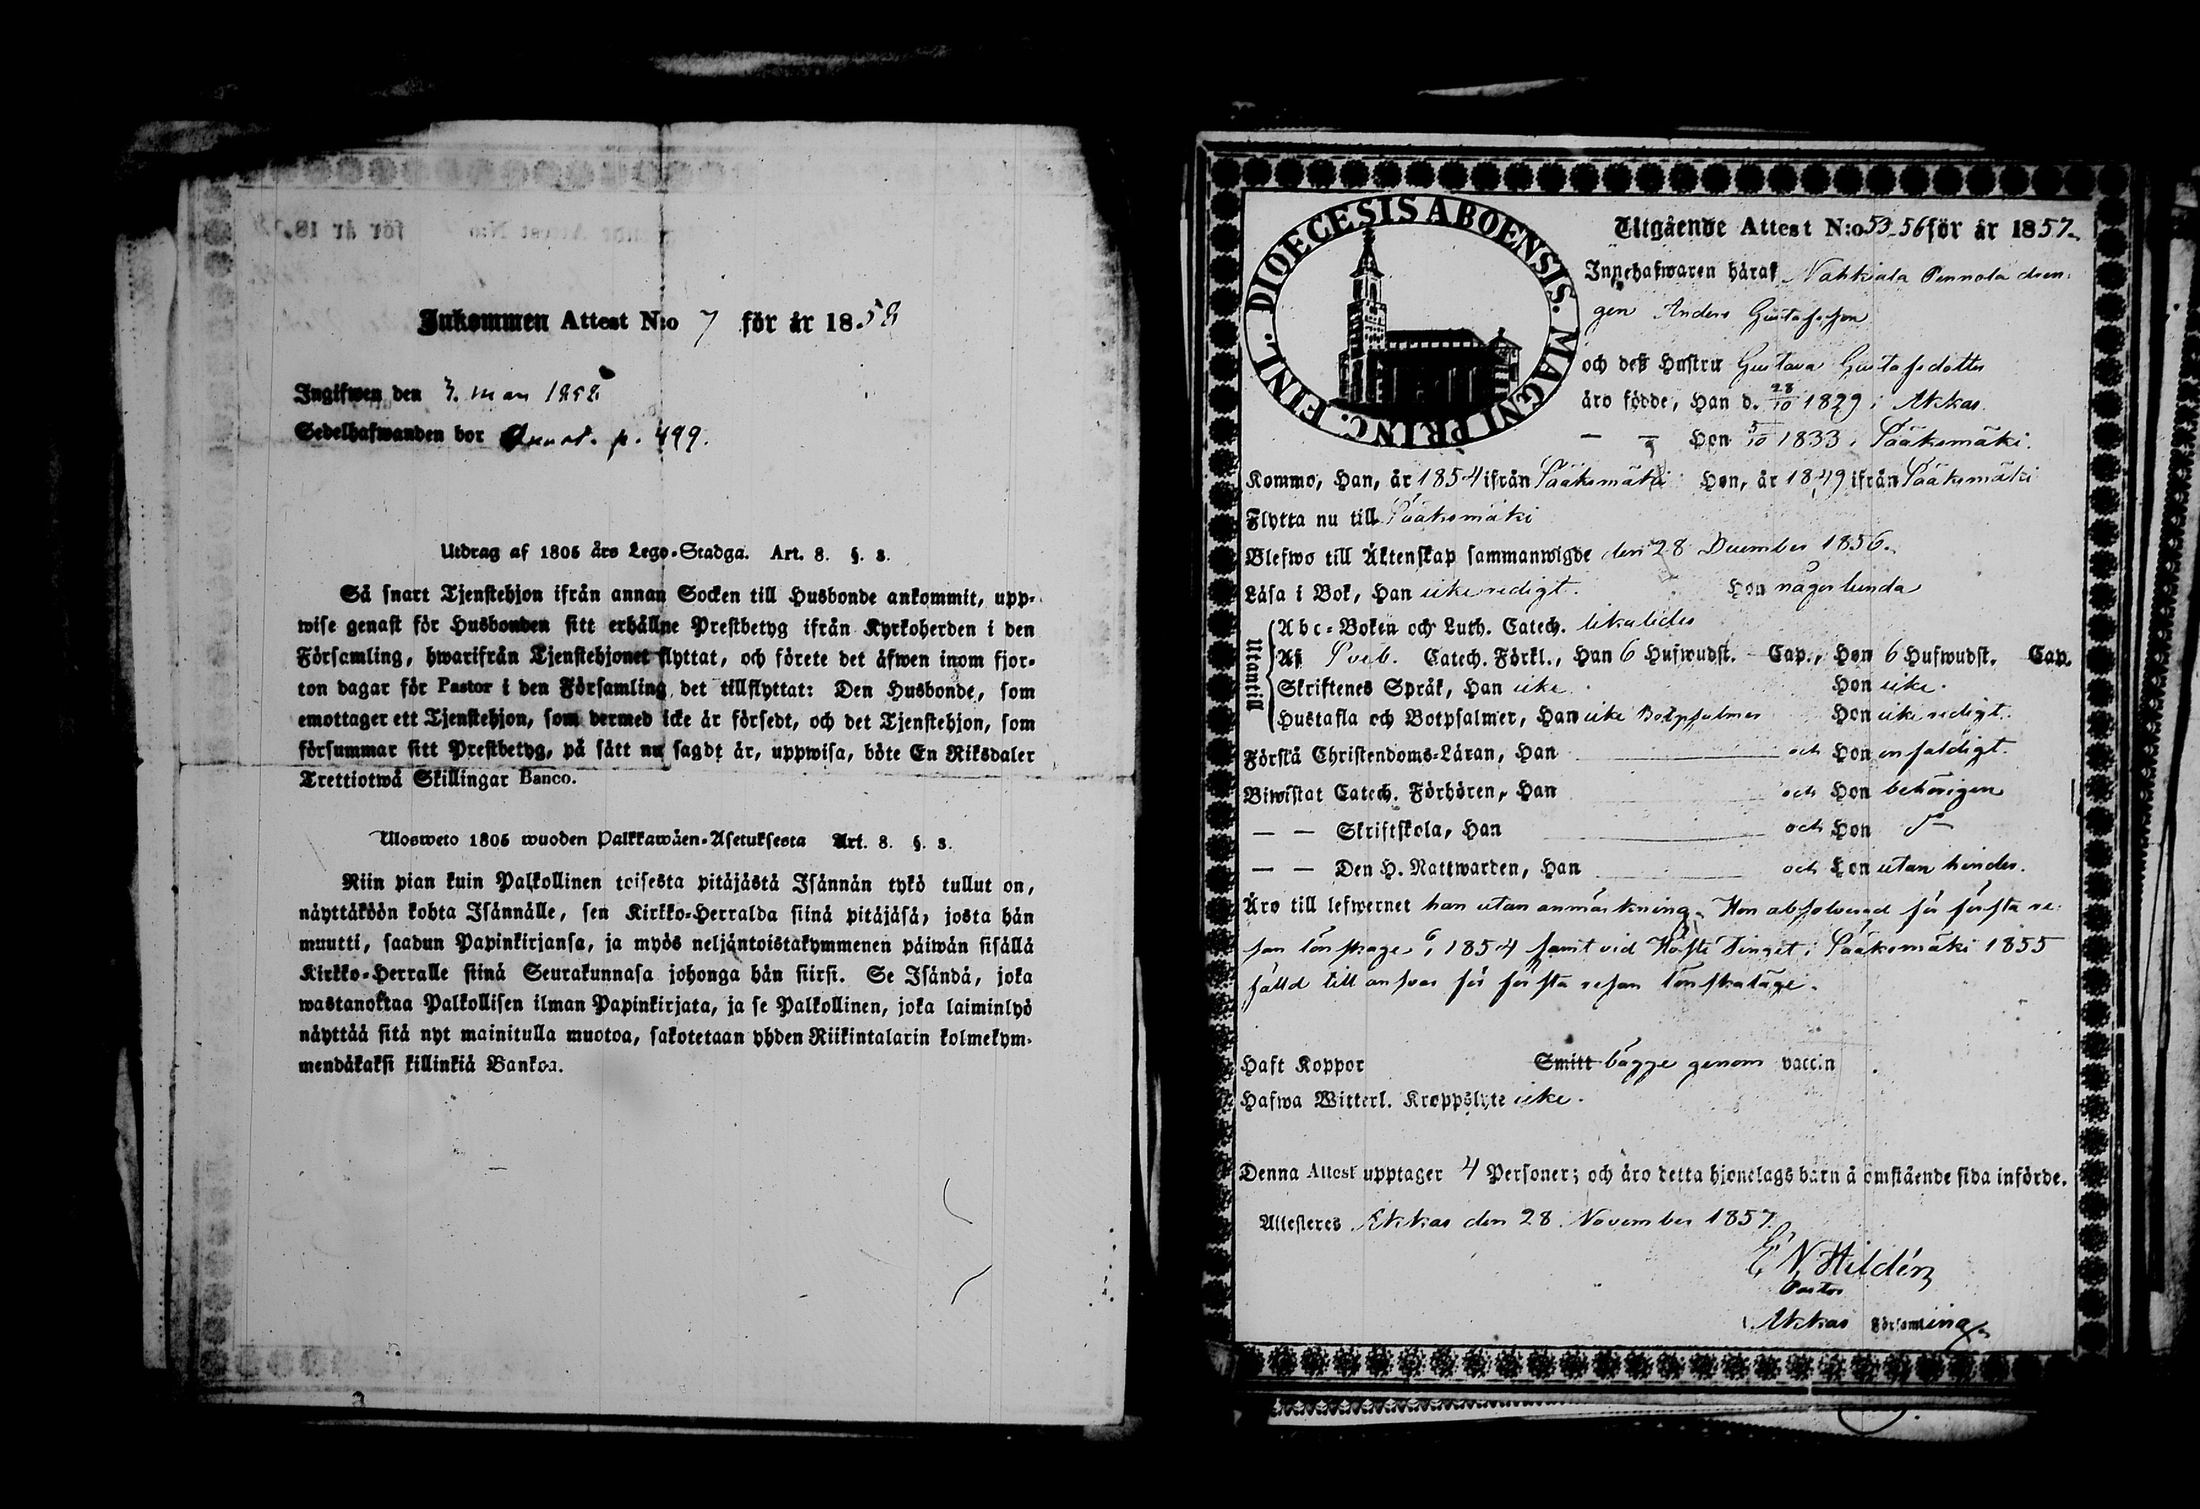 Inkommen Attest N:o 7 för år 1858
Ingifwen den 3. mars 1858
Sedelhafwanden bor p. 499.
Utdrag af 1805 års Lego-Stadga. Art. 8. §. 3.
Så snart Tjenstehjon ifrån annan Socken till Husbonde ankommit, upp-
wise genast för Husbonden sitt erhållne Prestbetyg ifrån Kyrkoherden i den
Församling, hwarifrån Tjenstehjonet flyttat, och förete det äfwen inom fjor-
ton dagar för Pastor i den Församling det tillflyttat: Den Husbonde, som
emottager ett Tjenstehjon, som dermed icke är försedt, och det Tjenstehjon, som
försummar sitt Prestbetyg, på sätt nu sagdt är, uppwisa, böte En Riksdaler
Trettiotwå Skillingar Banco.
Ulosweto 1805 wuoden Palkkawäen-Asetuksesta Art. 8. §. 3.
Niin pian kuin Palkollinen toisesta pitäjästä Isännän tykö tullut on,
näyttäköön kohta Isännälle, sen Kirkko-Herralda siinä pitäjäsä, josta hän
muutti, saadun Papinkirjansa, ja myös neljäntoistakymmenen päiwän sisällä
Kirkko-Herralle siinä Seurakunnasa johonga hän siirsi. Se Isändä, joka
wastanottaa Palkollisen ilman Papinkirjata, ja se Palkollinen, joka laiminlyö
näyttää sitä nyt mainitulla muotoa, sakotetaan yhden Riikintalarin kolmekym-
mendäkaksi killinkiä Bankoa.
DIOECESIS ABOENSIS. MAGNI PRINC. FINL.
Utgående Attest N:o 53-56 för år 1857.
Innehafwaren häraf Nahkiala Pennola dren-
gen Anders Gustafsson
och deß Hustru Gustava Gustafsdotter
äro födde, Han d. 28/10 1829 i Akkas.
— — Hon 5/10 1833 i Sääksmäki.
Kommo, Han, år 1854 ifrån Sääksmäki Hon, år 1849 ifrån Sääksmäki
Flytta nu till Sääksmäki
Blefwo till Äktenskap sammanwigde den 28 December 1856.
Läsa i Bok, Han icke redigt. Hon någorlunda
Utantill
Abc-Boken och Luth. Catech. likaledes
Af Sveb. Catech. Förkl., Han 6 Hufwudst. Cap., Hon 6 Hufwudst. Cap.
Skriftenes Språk, Han icke Hon icke.
Hustafla och Botpsalmer, Han icke Botpsalmer Hon icke redigt.
Förstå Christendoms-Läran, Han och Hon enfaldigt.
Biwistat Catech. Förhören, Han och Hon behörigen
— — Skriftskola, Han och Hon do
— — Den H. Nattwarden, Han och Hon utan hinder.
Äro till lefwernet han utan anmärkning. Hon absolverad för första re-
san lönskläge 1854 samt vid Höste Tinget i Sääksmäki 1855
fälld till answar för första resan lönskaläge.
Haft Koppor Smitt bägge genom vaccin
Hafwa Witterl. Kroppslyte icke.
Denna Attest upptager 4 Personer; och äro detta hjonelags barn å omstående sida införde.
Attesteres Akkas den 28 November 1857.
E N Hildén
Pastor
i Akkas Församling